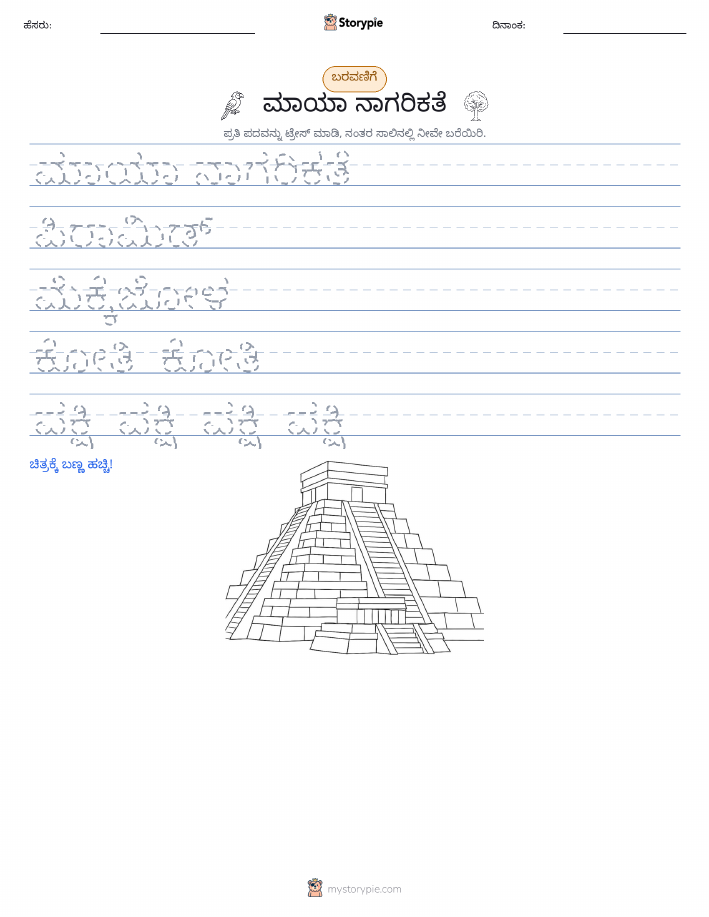 ಹೆಸರು: Storypie ದಿನಾಂಕ:
ಬರವಣಿಗೆ
ಮಾಯಾ ನಾಗರಿಕತೆ
ಪ್ರತಿ ಪದವನ್ನು ಟ್ರೇಸ್ ಮಾಡಿ, ನಂತರ ಸಾಲಿನಲ್ಲಿ ನೀವೇ ಬರೆಯಿರಿ.
ಮಾಯಾ ನಾಗರಿಕತೆ
ಪಿರಾಮಿಡ್
ಮೆಕ್ಕೆಜೋಳ
ಕೋತಿ ಕೋತಿ
ಪಕ್ಷಿ ಪಕ್ಷಿ ಪಕ್ಷಿ ಪಕ್ಷಿ
ಚಿತ್ರಕ್ಕೆ ಬಣ್ಣ ಹಚ್ಚಿ!
mystorypie.com